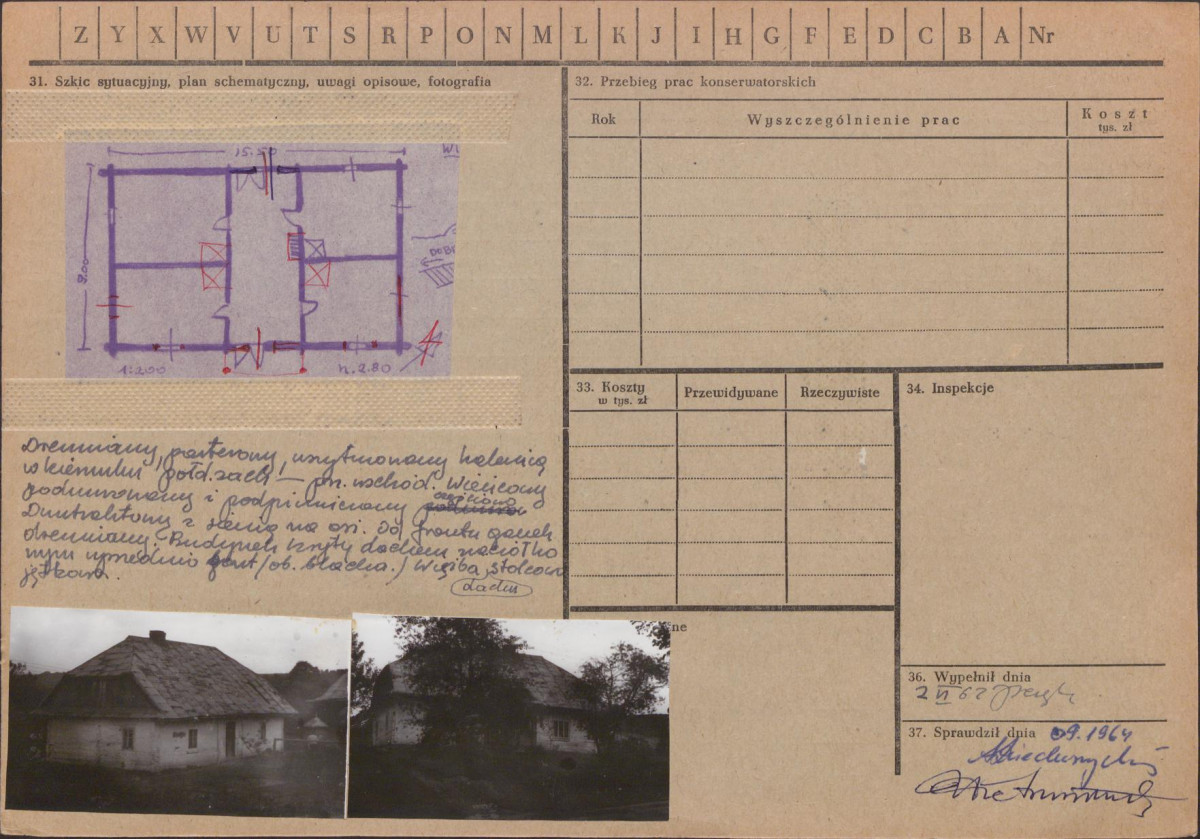 Z Y X W V U T S R P O N M L K J I H G F E D C B A Nr
31. Szkic sytuacyjny, plan schematyczny, uwagi opisowe, fotografia
15.50
WI
9.00
DOBR
1:200
h. 2.80
Drewniany, parterowy, usytuowany kalenicą
w kierunku połd. zach. – pn. wschód. Wieńcowy
podmurowany i podpiwniczony częściowo
Dwutraktowy z sienią na osi. Od frontu ganek
drewniany. Budynek kryty dachem naczółko
wym uprzednio gont /ob. blacha./ Więźba stolcowo
jętkowa.
dachu
32. Przebieg prac konserwatorskich
Rok
Wyszczególnienie prac
Koszt
tys. zł
33. Koszty
w tys. zł
Przewidywane
Rzeczywiste
34. Inspekcje
ne
36. Wypełnił dnia
2 VI 62
37. Sprawdził dnia 09.1964